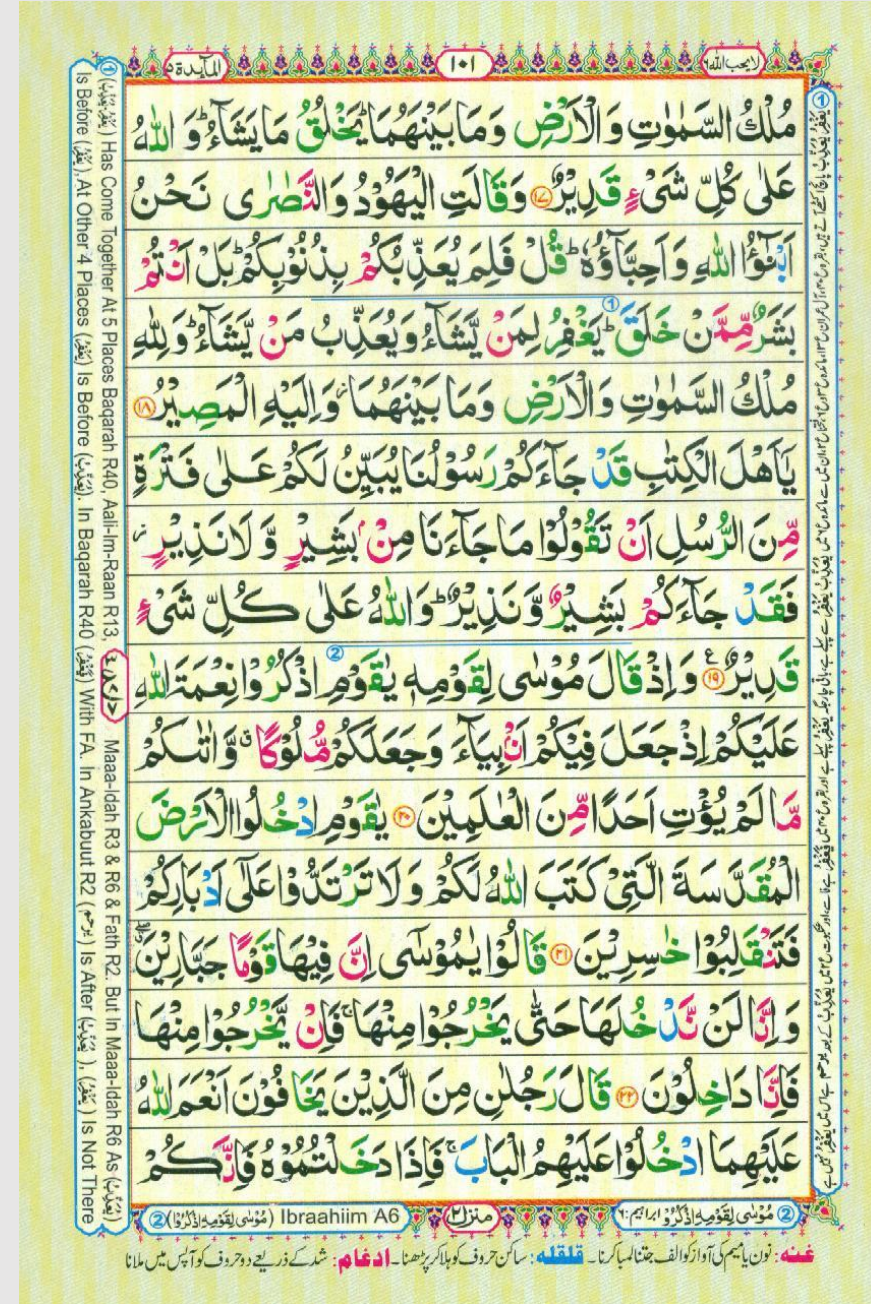 المآئدة ٥
١٠١
لا يحب الله ٦
مُلْكُ السَّمٰوٰتِ وَالْاَرْضِ وَمَا بَيْنَهُمَا ؕ يَخْلُقُ مَا يَشَآءُ ؕ وَ اللّٰهُ
عَلٰى كُلِّ شَىْءٍ قَدِيْرٌ ﴿۱۷﴾ وَقَالَتِ الْيَهُوْدُ وَالنَّصٰرٰى نَحْنُ
اَبْنٰٓؤُا اللّٰهِ وَاَحِبَّآؤُهٗ ؕ قُلْ فَلِمَ يُعَذِّبُكُمْ بِذُنُوْبِكُمْ ؕ بَلْ اَنْتُمْ
بَشَرٌ مِّمَّنْ خَلَقَ ؕ يَغْفِرُ لِمَنْ يَّشَآءُ وَيُعَذِّبُ مَنْ يَّشَآءُ ؕ وَلِلّٰهِ
مُلْكُ السَّمٰوٰتِ وَالْاَرْضِ وَمَا بَيْنَهُمَا ؗ وَاِلَيْهِ الْمَصِيْرُ ﴿۱۸﴾
يٰۤاَهْلَ الْكِتٰبِ قَدْ جَآءَكُمْ رَسُوْلُنَا يُبَيِّنُ لَكُمْ عَلٰى فَتْرَةٍ
مِّنَ الرُّسُلِ اَنْ تَقُوْلُوْا مَا جَآءَنَا مِنْۢ بَشِيْرٍ وَّلَا نَذِيْرٍ ؗ
فَقَدْ جَآءَكُمْ بَشِيْرٌ وَّنَذِيْرٌ ؕ وَاللّٰهُ عَلٰى كُلِّ شَىْءٍ
قَدِيْرٌ ﴿۱۹﴾ وَاِذْ قَالَ مُوْسٰى لِقَوْمِهٖ يٰقَوْمِ اذْكُرُوْا نِعْمَةَ اللّٰهِ
عَلَيْكُمْ اِذْ جَعَلَ فِيْكُمْ اَنْۢبِيَآءَ وَجَعَلَكُمْ مُّلُوْكًا ۖ وَّاٰتٰىكُمْ
مَّا لَمْ يُؤْتِ اَحَدًا مِّنَ الْعٰلَمِيْنَ ﴿۲۰﴾ يٰقَوْمِ ادْخُلُوا الْاَرْضَ
الْمُقَدَّسَةَ الَّتِىْ كَتَبَ اللّٰهُ لَكُمْ وَلَا تَرْتَدُّوْا عَلٰٓى اَدْبَارِكُمْ
فَتَنْقَلِبُوْا خٰسِرِيْنَ ﴿۲۱﴾ قَالُوْا يٰمُوْسٰٓى اِنَّ فِيْهَا قَوْمًا جَبَّارِيْنَ
وَاِنَّا لَنْ نَّدْخُلَهَا حَتّٰى يَخْرُجُوْا مِنْهَا ۚ فَاِنْ يَّخْرُجُوْا مِنْهَا
فَاِنَّا دَاخِلُوْنَ ﴿۲۲﴾ قَالَ رَجُلٰنِ مِنَ الَّذِيْنَ يَخَافُوْنَ اَنْعَمَ اللّٰهُ
عَلَيْهِمَا ادْخُلُوْا عَلَيْهِمُ الْبَابَ ۚ فَاِذَا دَخَلْتُمُوْهُ فَاِنَّكُمْ
① (يَغْفِرُ يُعَذِّبُ) Has Come Together At 5 Places Baqarah R40, Aali-Im-Raan R13, Maaa-Idah R3 & R6 & Fath R2. But In Maaa-Idah R6 As (يُعَذِّبُ)
Is Before (يَغْفِرُ), At Other 4 Places (يَغْفِرُ) Is Before (يُعَذِّبُ). In Baqarah R40 (فَيَغْفِرُ) With FA. In Ankabuut R2 (يرحم) Is After (يُعَذِّبُ), (يَغْفِرُ) Is Not There
② مُوْسٰى لِقَوْمِهِ اذْكُرُوْا ابراہیم:٦
منزل ٢
② (مُوْسٰى لِقَوْمِهِ اذْكُرُوْا) Ibraahiim A6
غنہ: نون یا میم کی آواز کو الف جتنا لمبا کرنا ۔ قلقلہ: ساکن حروف کو ہلا کر پڑھنا ۔ ادغام: شد کے ذریعے دو حروف کو آپس میں ملانا